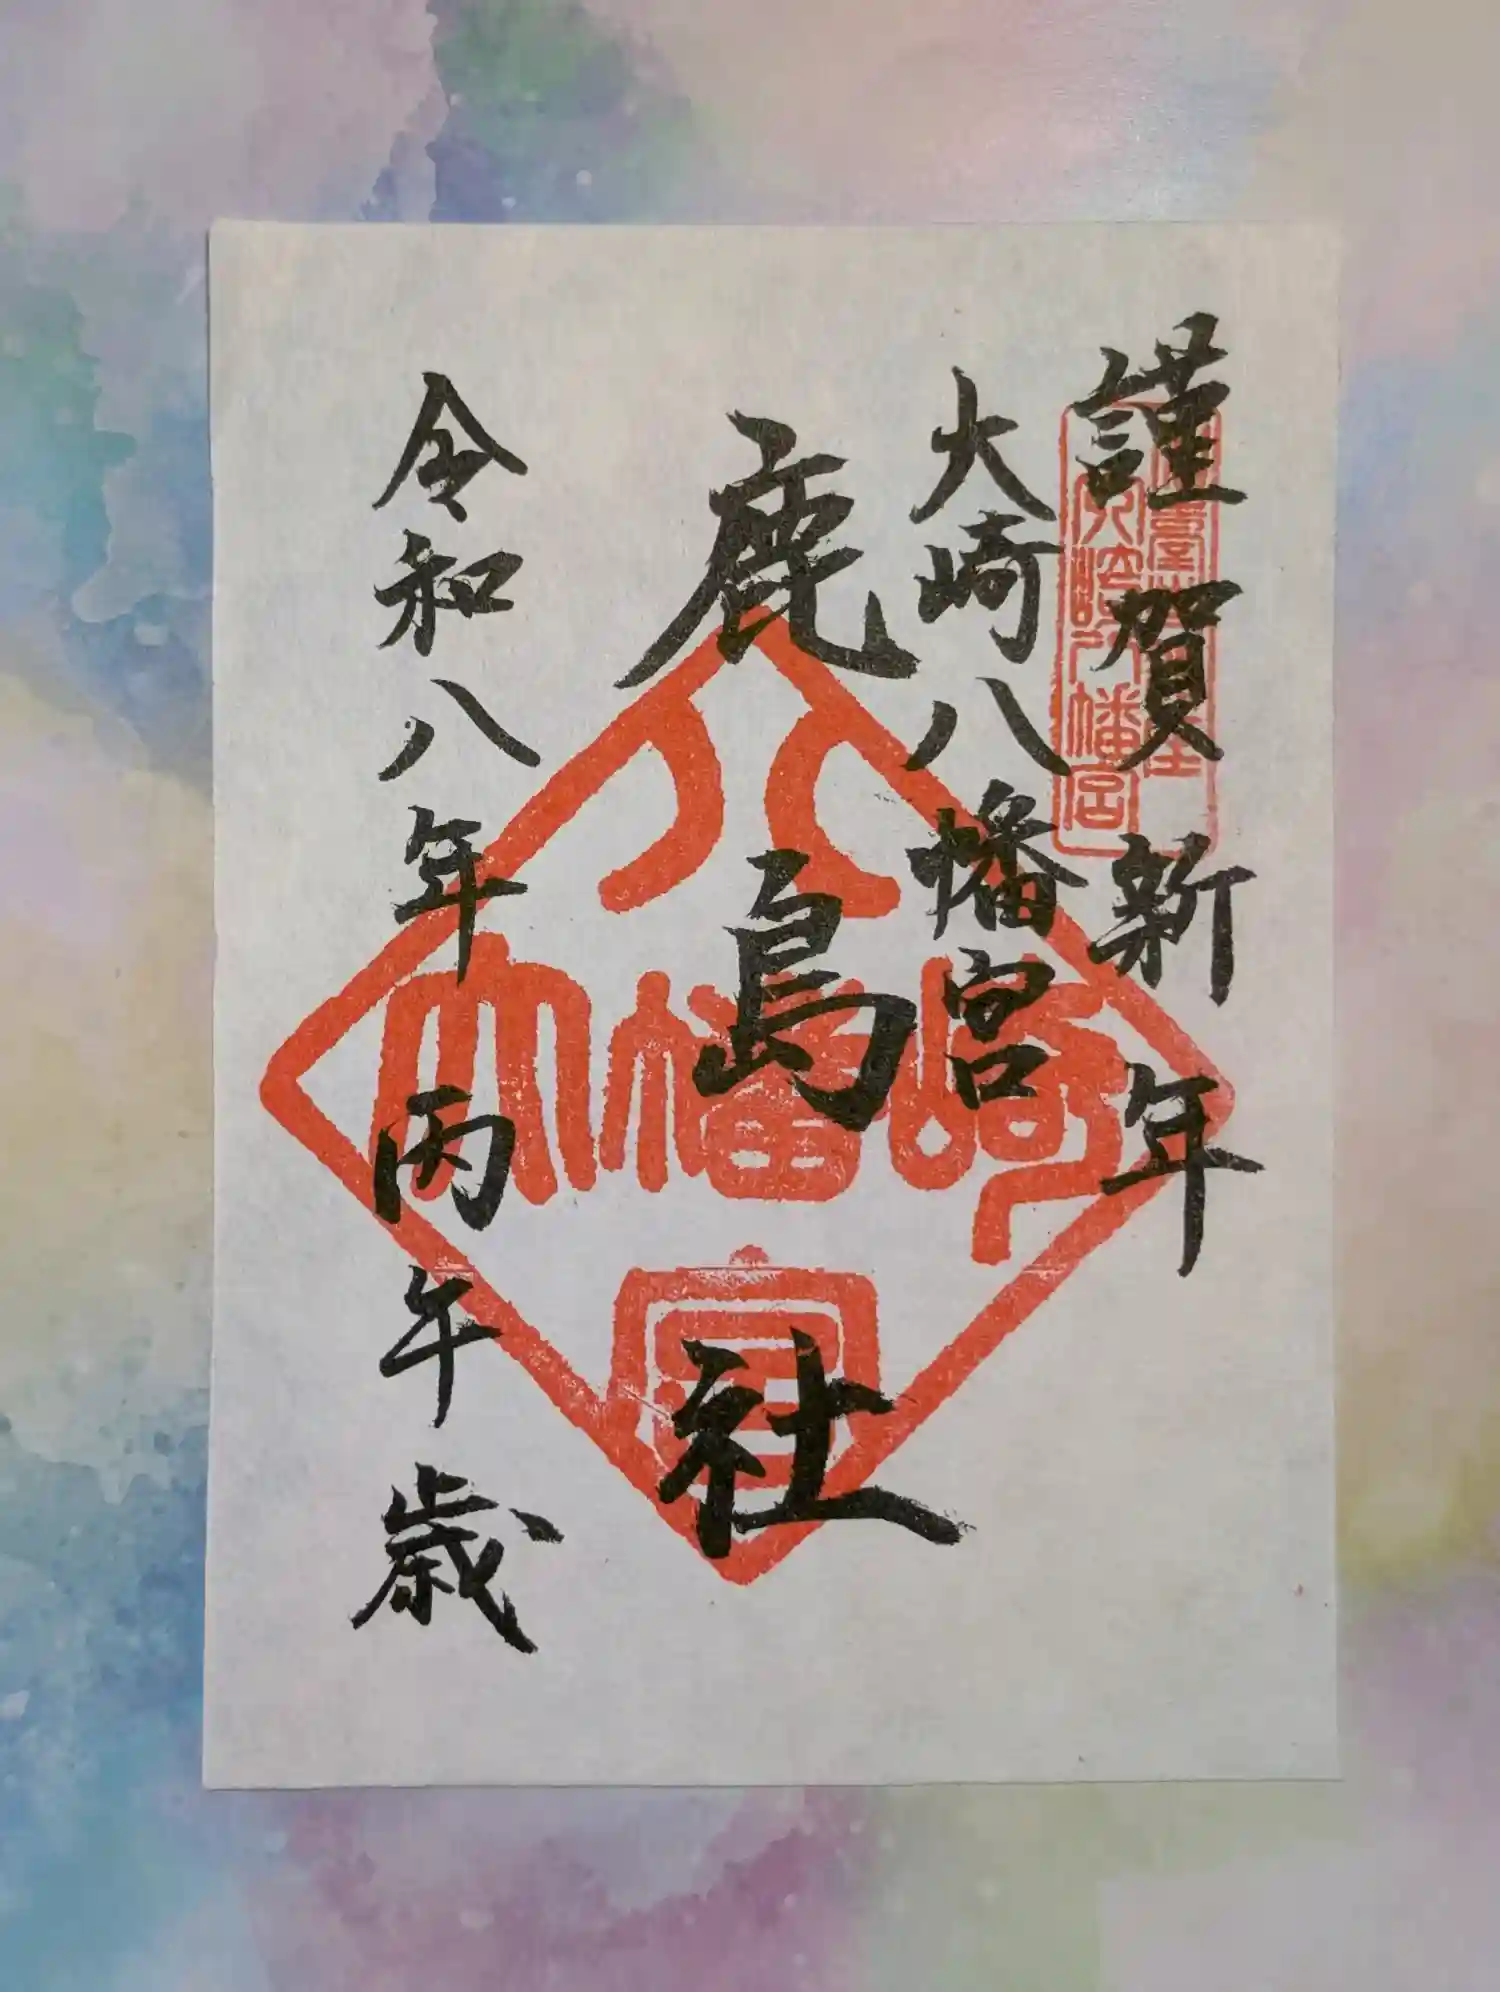 謹賀新年
大崎八幡宮
鹿島社
令和八年丙午歳
大崎八幡宮